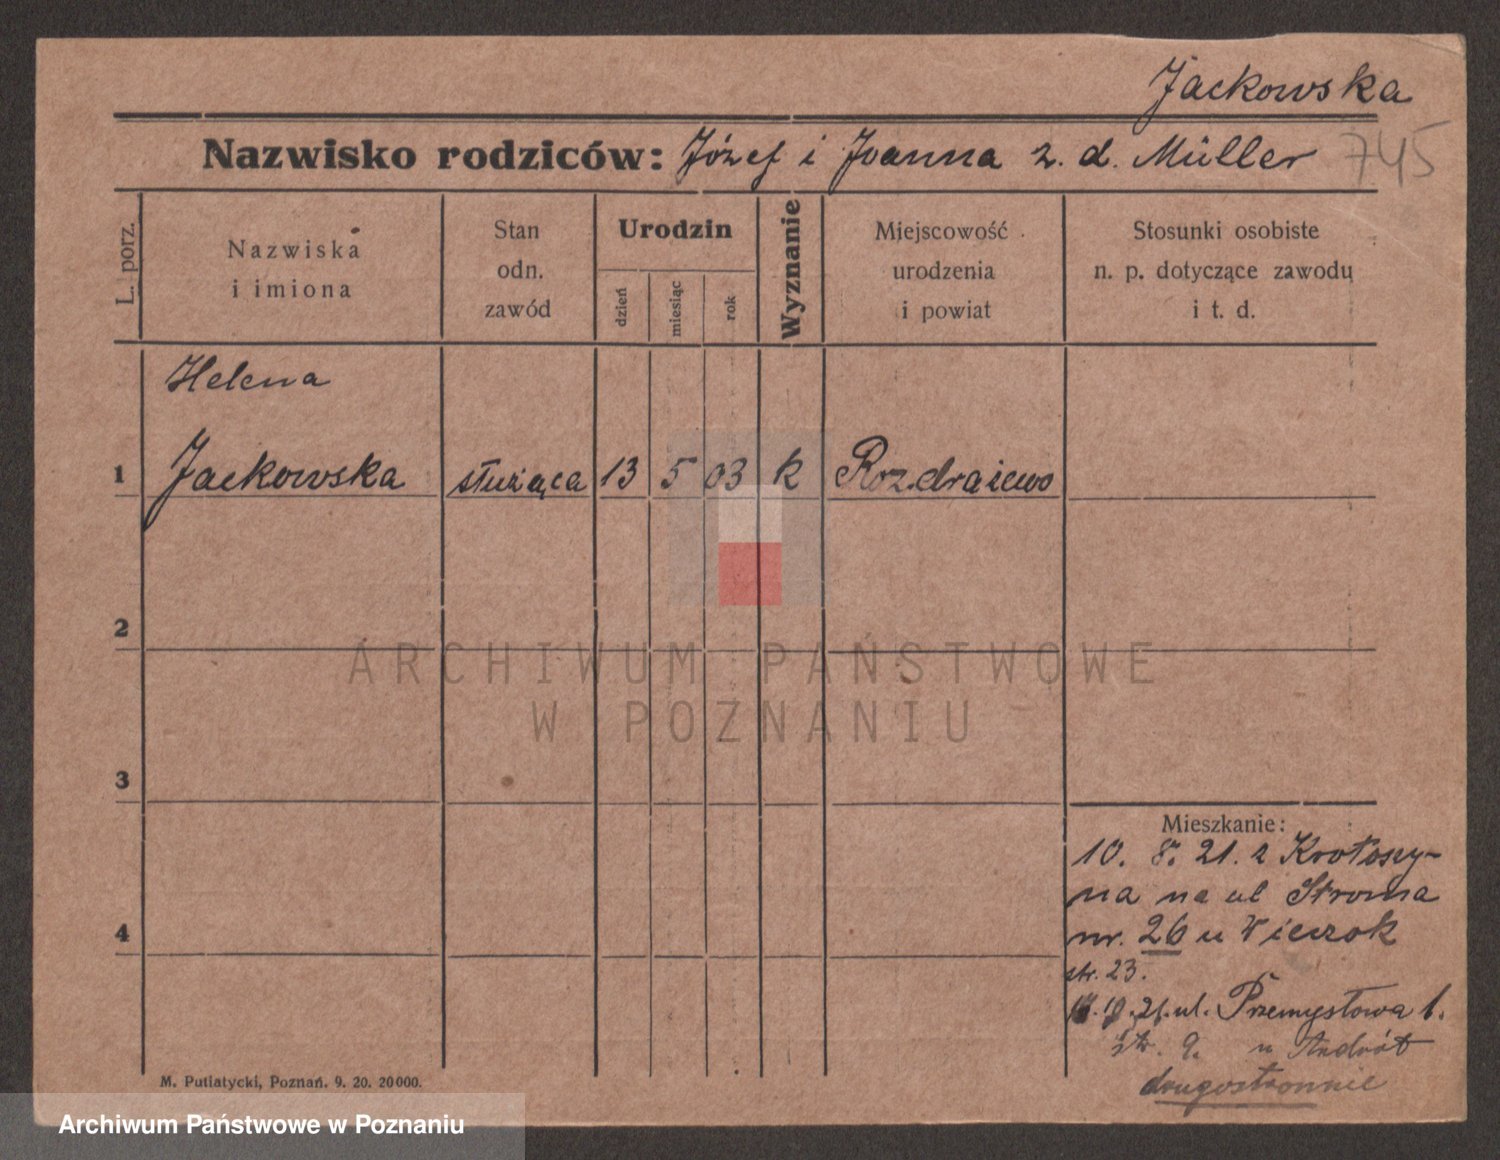 Jackowska
Nazwisko rodziców: Józef i Joanna z. d. Müller 745
L. porz.
Nazwiska
i imiona
Stan
odn.
zawód
Urodzin
dzień
miesiąc
rok
Wyznanie
Miejscowość
urodzenia
i powiat
Stosunki osobiste
n. p. dotyczące zawodu
i t. d.
Helena
1 Jackowska służąca 13 5 03 k Rozdrażewo
2
3
4
ARCHIWUM PAŃSTWOWE
W POZNANIU
Mieszkanie:
10. 8. 21. z Krotoszy-
na na ul Stroma
nr. 26 u Wieczok
str. 23.
21. ul. Przemysłowa 1.
str. 9. u
drugostronnie
M. Putiatycki, Poznań. 9. 20. 20000.
Archiwum Państwowe w Poznaniu